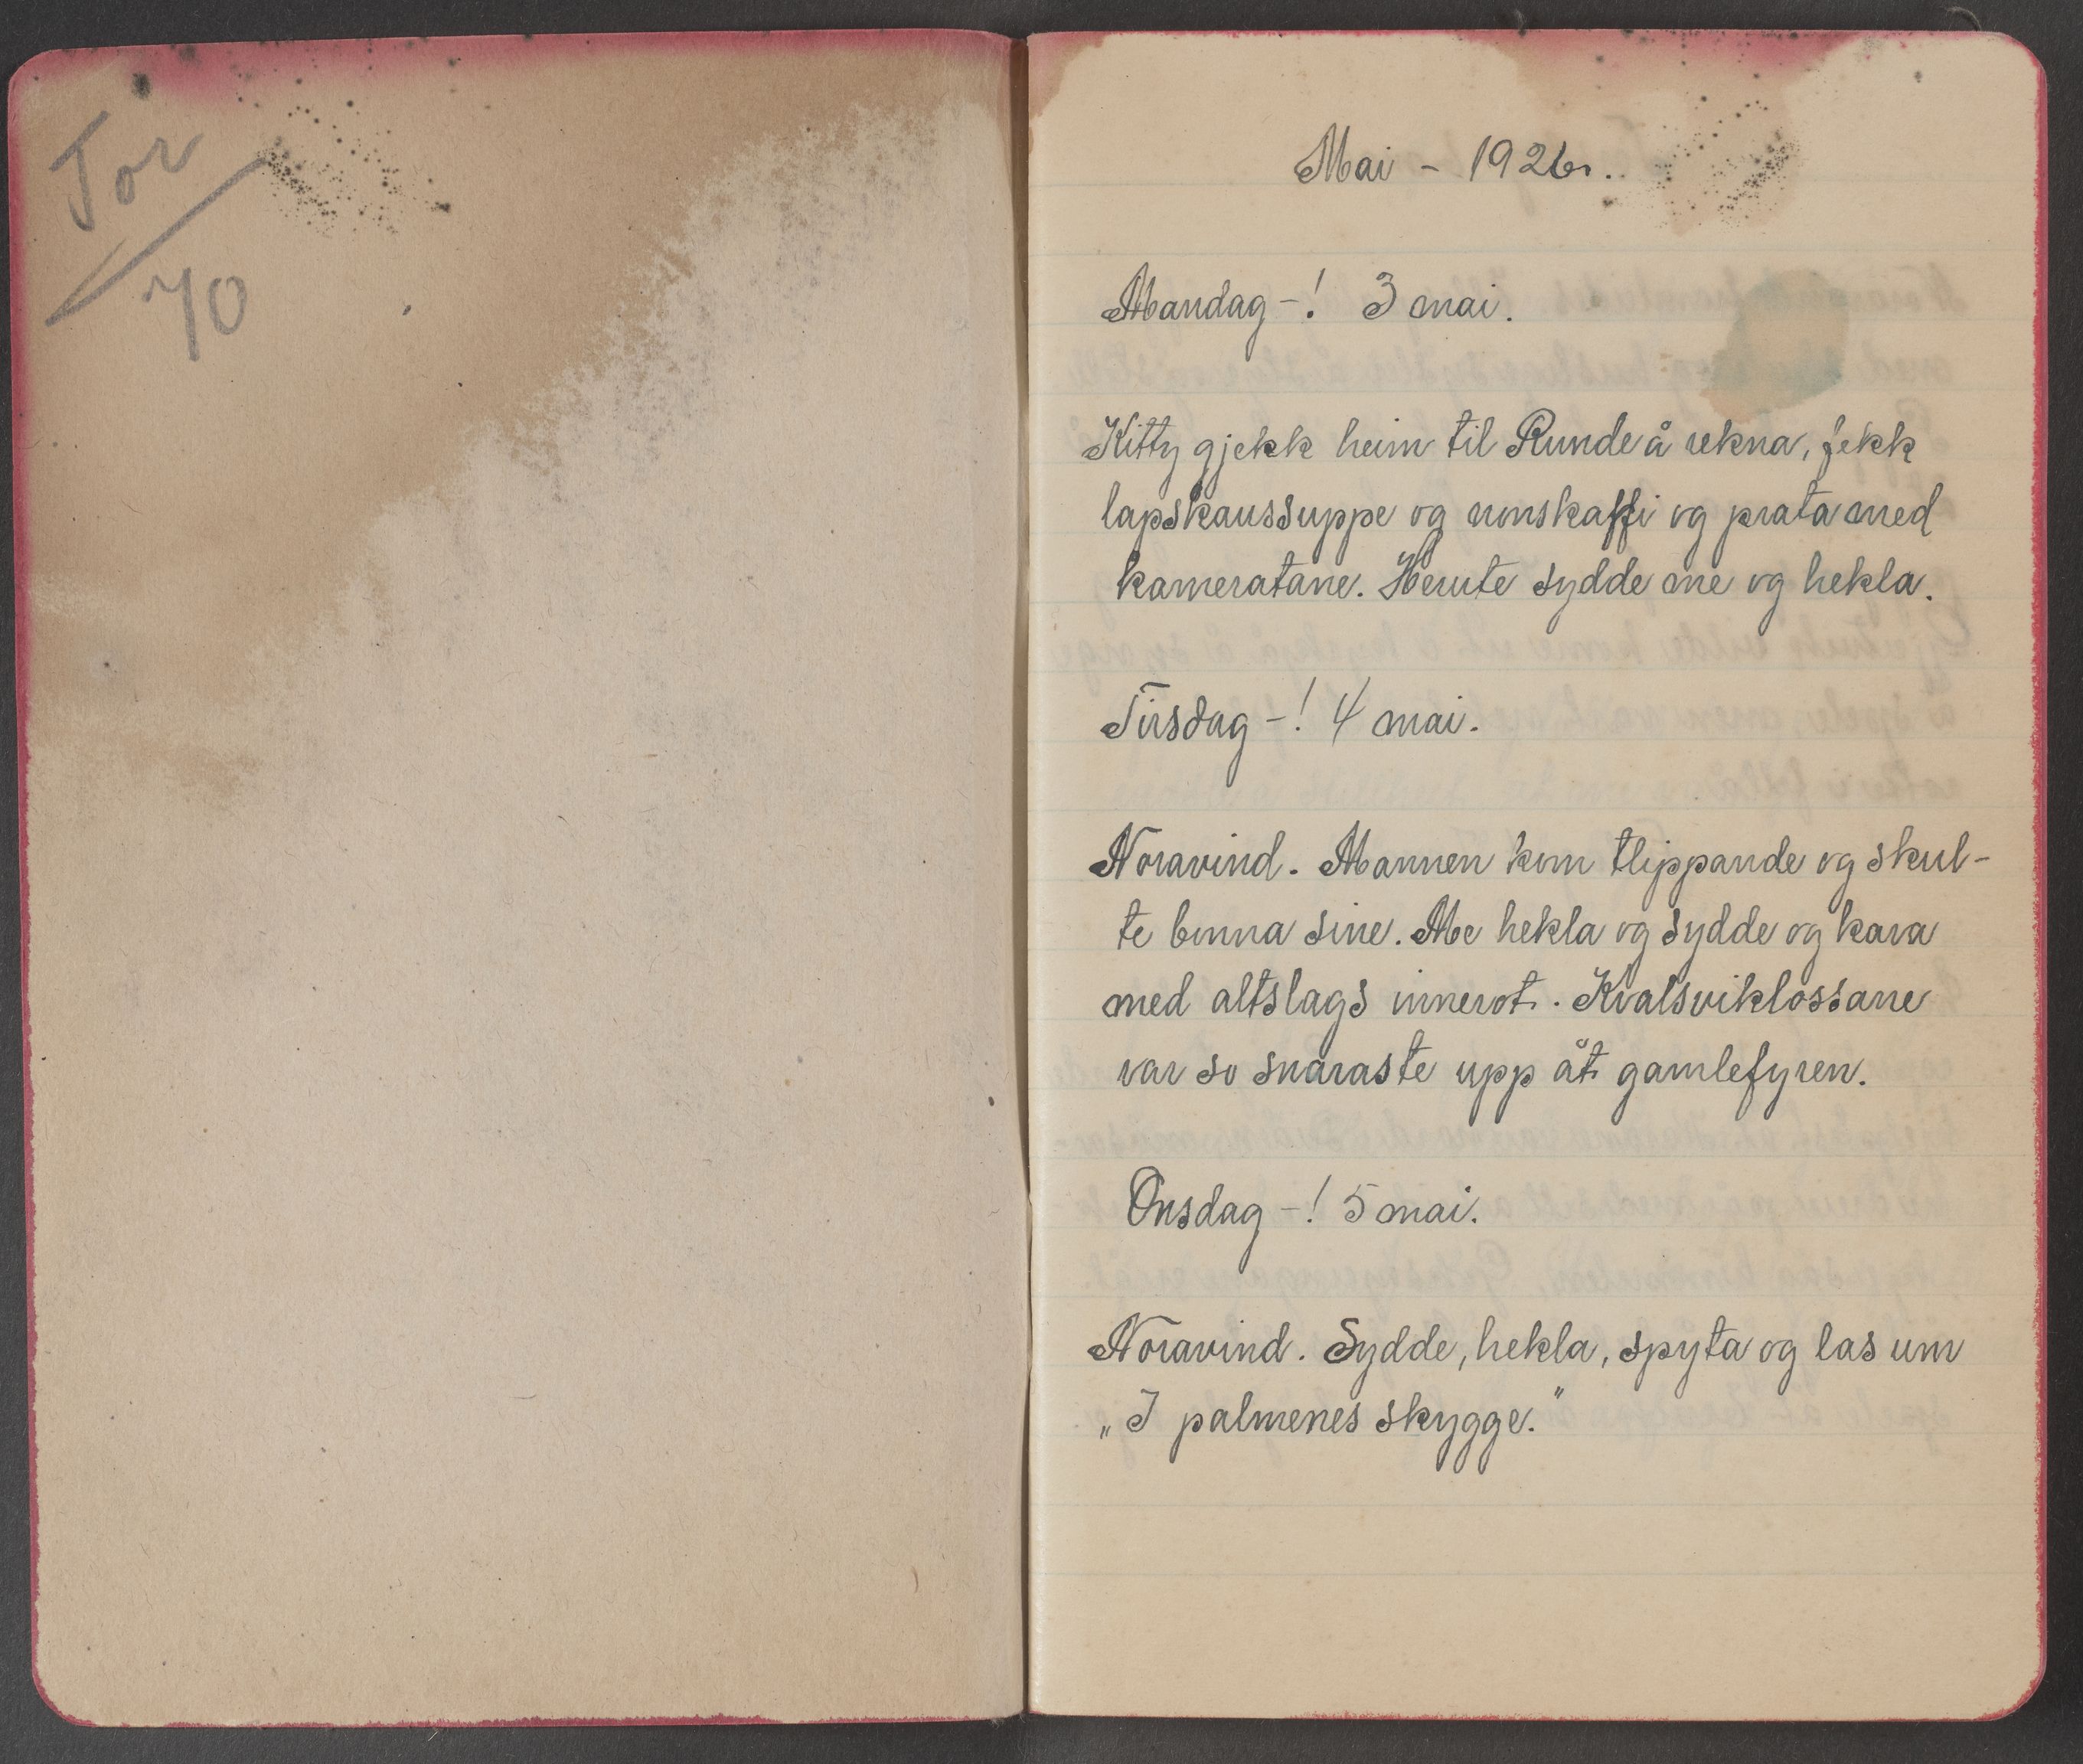 Tor
70
Mai - 1926.
Mandag -! 3 mai.
Kitty gjekk heim til Runde å rekna, fekk
lapskaussuppe og nonskaffi og prata med
kameratane. Herute sydde me og hekla.
Tirsdag -! 4 mai.
Noravind. Mannen kom tlippande og skul-
te bonna sine. Me hekla og sydde og kara
med altslags innerot. Kvalsviklossane
var so snaraste upp åt gamlefyren.
Onsdag -! 5 mai.
Noravind. Sydde, hekla, spyta og las um
„I palmenes skygge."